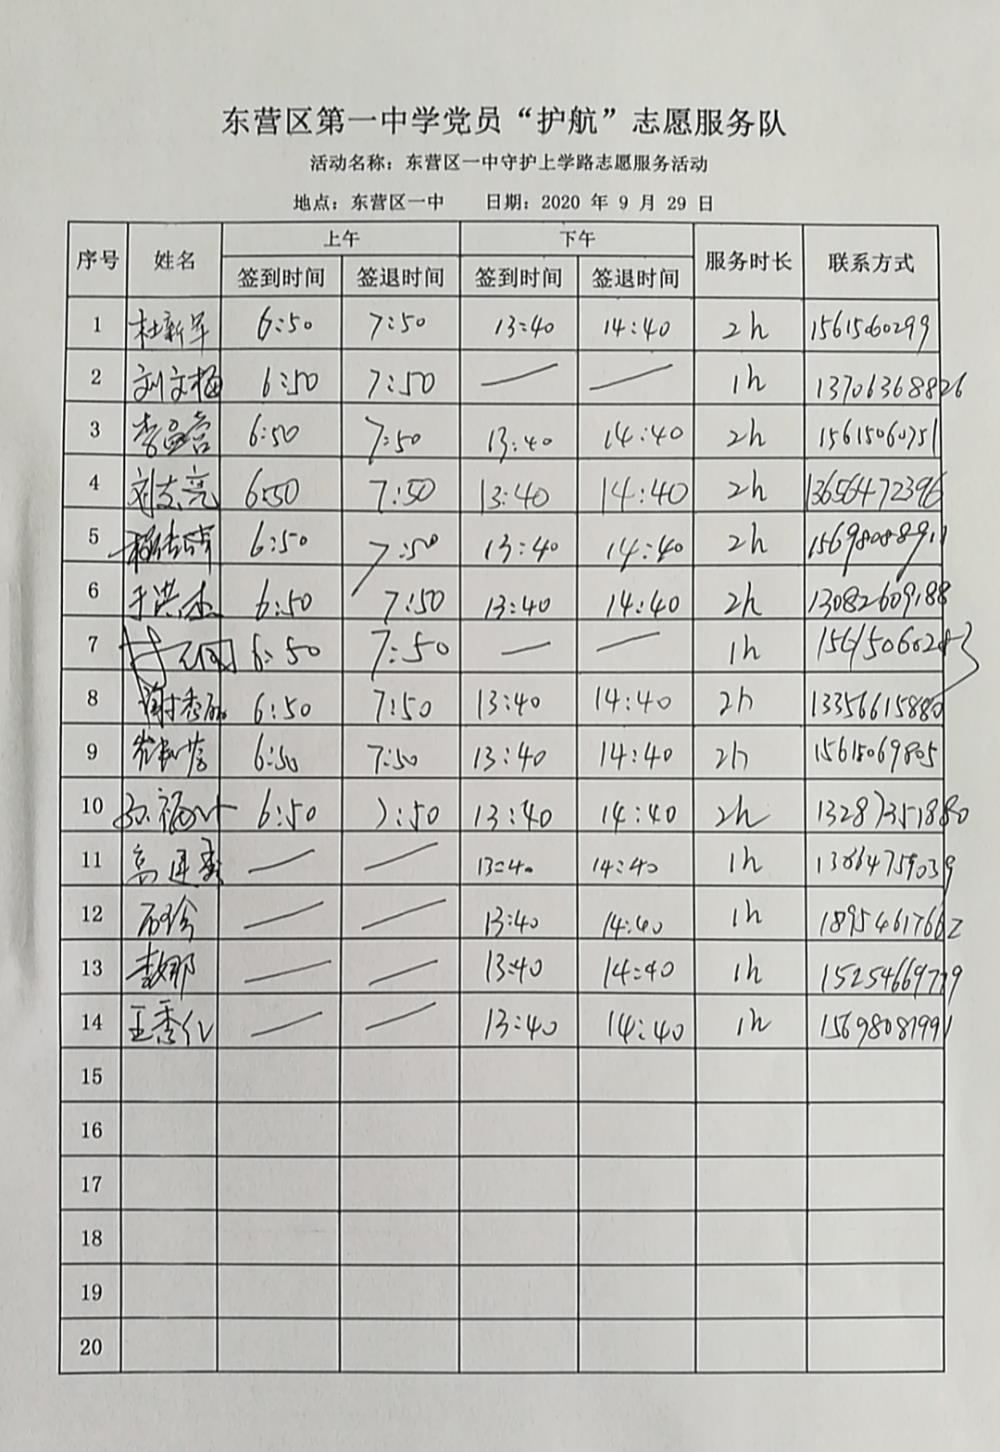 东营区第一中学党员“护航”志愿服务队
活动名称：东营区一中守护上学路志愿服务活动
地点：东营区一中 日期：2020 年 9 月 29 日
序号 姓名 上午 下午 服务时长 联系方式
签到时间 签退时间 签到时间 签退时间
1 杜新军 6:50 7:50 13:40 14:40 2h 15615060299
2 刘文梅 6:50 7:50 — — 1h 13706368826
3 李孟营 6:50 7:50 13:40 14:40 2h 15615060751
4 刘志亮 6:50 7:50 13:40 14:40 2h 13656472396
5 6:50 7:50 13:40 14:40 2h 15698088911
6 于洪杰 6:50 7:50 13:40 14:40 2h 13082609188
7 6:50 7:50 — — 1h
8 谢秀丽 6:50 7:50 13:40 14:40 2h 13356615880
9 6:50 7:50 13:40 14:40 2h 15615069805
10 6:50 7:50 13:40 14:40 2h 13287351880
11 — — 13:40 14:40 1h 13864759039
12 石珍 — — 13:40 14:40 1h 18954617662
13 李娜 — — 13:40 14:40 1h 15254669779
14 王秀仁 — — 13:40 14:40 1h 15698081991
15
16
17
18
19
20